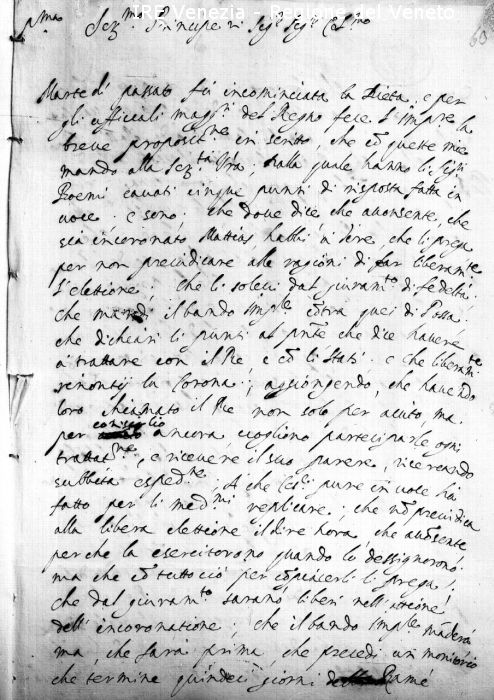 IRE Venezia - Regione del Veneto
p.ma Ser.mo Principe
Marte di passato fù incominciata la Dieta, e per
gli officiali magg.ri del Regno fece l'Imp.re la
breve propositi.ne in scritto, che cõ queste mie
mando alla Ser.ta V.ra, dalla quale hanno li SSri
Boemi cavati cinque punti di risposta fatta in
voce. e sono; che dove dice che acconsente, che
sia incoronato Mattias habbi à dire, che li prega
per non preiudicare alle ragioni di far liberam.te
l'elettione; che li solevi dal giuram.to di fedeltà,
che mandi il bando Imp.le cõtra quei di Possa.
che dichiari li punti al p.nte che dice havere
à trattare con il Re, e cõ li Stati. e che liberam.te
renontij la Corona; aggiongendo, che havendo
loro chiamato il Re non solo per aiuto ma
per conseglio ancora, vogliono participarle ogni
trattat.ne, e ricevere il suo parere, ricercando
subbita esped.ne; A che Ces.e pure in voce hà
fatto per li med.mi replicare; che nõ preiudica
alla libera elettione il dire hora, che acõsente
perche la esercitorono quando lo dessignorono
ma che cõ tutto ciò per cõpiacerli li prega;
che dal giuram.to sarano liberi nell'attione
dell'incoronatione; che il bando Imp.le manderà
ma, che sarà prima, che precedi un monitorio
che termine quindeci giorni Ramé